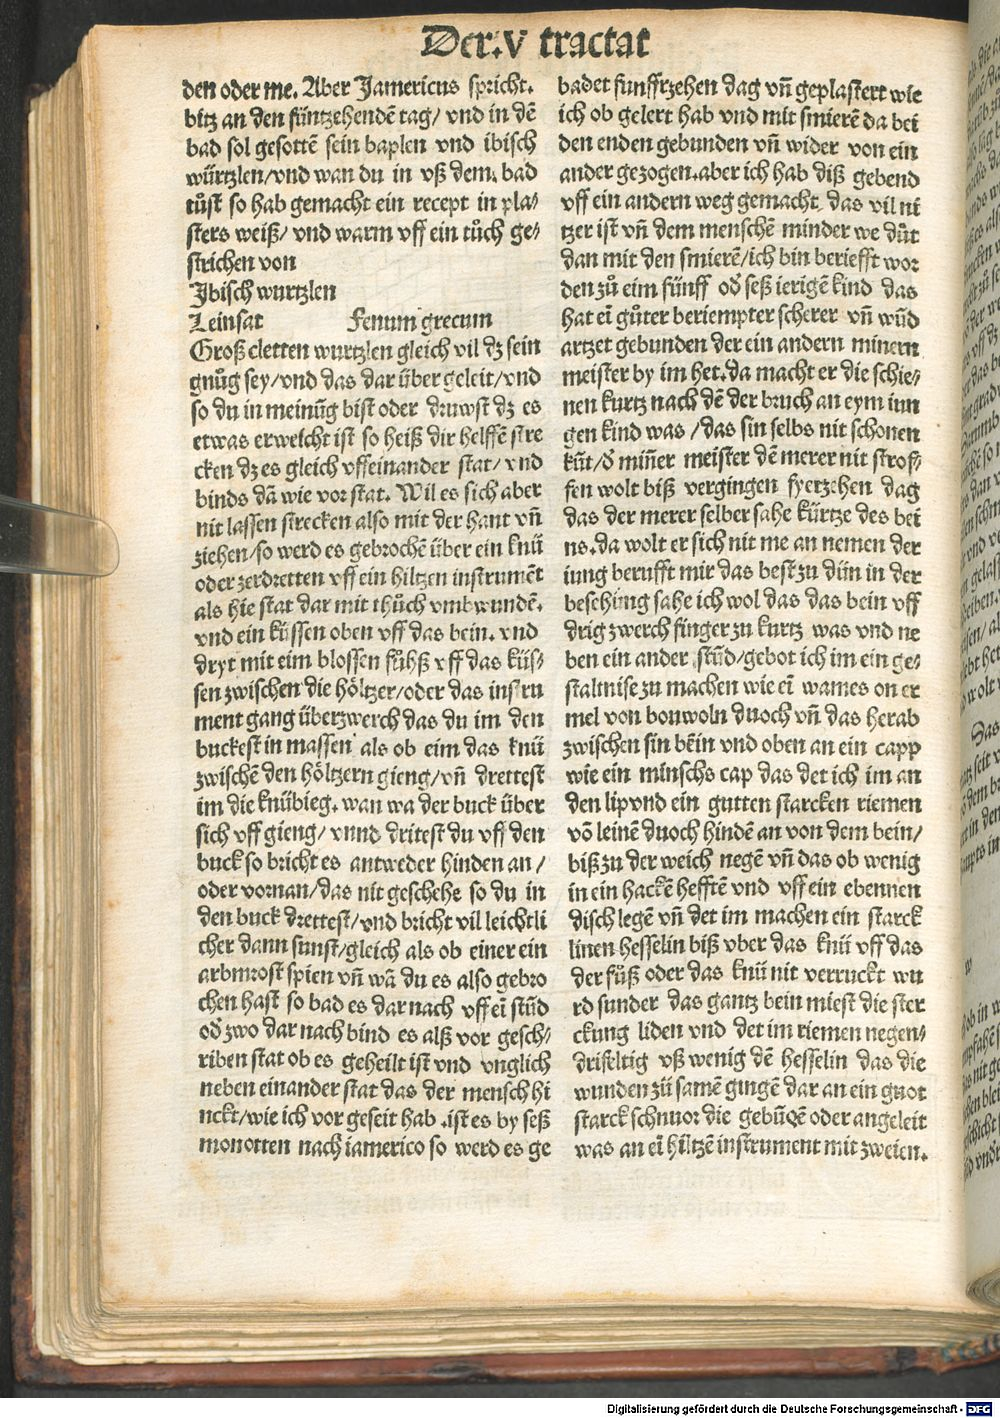 Der .v tractat
den oder me. Aber Jamericus spricht.
bitz an den füntzehendē tag/ vnd in dē
bad sol gesottē sein baplen vnd ibisch
würtzlen/vnd wan du in vß dem. bad
tůst so hab gemacht ein recept in pla⸗
sters weiß/ vnd warm vff ein tůch ge⸗
strichen von
Jbisch wurtzlen
Leinsat Fenum grecum
Groß cletten wurtzlen gleich vil dz sein
gnůg sey/vnd das dar über geleit/vnd
so du in meinūg bist oder druwst dz es
etwas erweicht ist so heiß dir helffē stre
cken dz es gleich vffeinander stat/ vnd
binds dā wie vor stat. Wil es sich aber
nit lassen strecken also mit der hant vñ
ziehen/so werd es gebrochē über ein knü
oder zerdretten vff ein hiltzen instrumēt
als hie stat dar mit thůch vmbwundē.
vnd ein küssen oben vff das bein. vnd
dryt mit eim blossen fůhß vff das küs⸗
sen zwischen die höltzer/oder das instru
ment gang überzwerch das du im den
buckest in massen als ob eim das knü
zwischē den höltzern gieng/vñ drettest
im die knübieg. wan wa der buck über
sich vff gieng/ vnnd dritest du vff den
buck so bricht es antweder hinden an/
oder vornan/das nit geschehe so du in
den buck drettest/vnd bricht vil leichtli
cher dann sunst/gleich als ob einer ein
armbrost spien vñ wā du es also gebro
chen hast so bad es dar nach vff eī stūd
oď zwo dar nach bind es alß vor gesch⸗
riben stat ob es geheilt ist vnd vnglich
neben einander stat das der mensch hi
nckt/wie ich vor geseit hab .ist es by seß
monotten nach iamerico so werd es ge
badet funffrzehen dag vñ geplastert wie
ich ob gelert hab vnd mit smierē da bei
den enden gebunden vñ wider von ein
ander gezogen.aber ich hab diß gebend
vff ein andern weg gemacht das vil ni
tzer ist vñ dem menschē minder we důt
dan mit den smierē/ich bin beriefft wor
den zů eim fünff oď seß ierigē kind das
hat eī gůter beriempter scherer vñ wūd
artzet gebunden der ein andern minern
meister by im het. da macht er die schie⸗
nen kurtz nach dē der bruch an eym iun
gen kind was /das sin selbs nit schonen
kūt/ď miñer meister dē merer nit strof⸗
fen wolt biß vergingen fyerzehen dag
das der merer selber sahe kürtze des bei
ns. da wolt er sich nit me an nemen der
iung berufft mir das best zu dün in der
beschung sahe ich wol das das bein vff
drig zwerch finger zu kurtz was vnd ne
ben ein ander stūd/gebot ich im ein ge⸗
staltnise zu machen wie eī wames on er
mel von bouwoln duoch vñ das herab
zwischen sin bēin vnd oben an ein capp
wie ein minschs cap das det ich im an
den lip vnd ein gutten starcken riemen
vō leinē duoch hindē an von dem bein/
biß zu der weich negē vñ das ob wenig
in ein hackē hefftē vnd vff ein ebennen
disch legē vñ det im machen ein starck
linen hesselin biß vber das knü vff das
der fůß oder das knü nit verruckt wu
rd sunder das gantz bein miest die ster
ckung liden vnd det im riemen negen⸗
drifeltig vß wenig dē hesselin das die
wunden zü samē gingē dar an ein guot
starck schnuor die gebūdē oder angeleit
was an eī hiltzē instrument mit zweien.
Digitalisierung gefördert durch die Deutsche Forschungsgemeinschaft - DFG